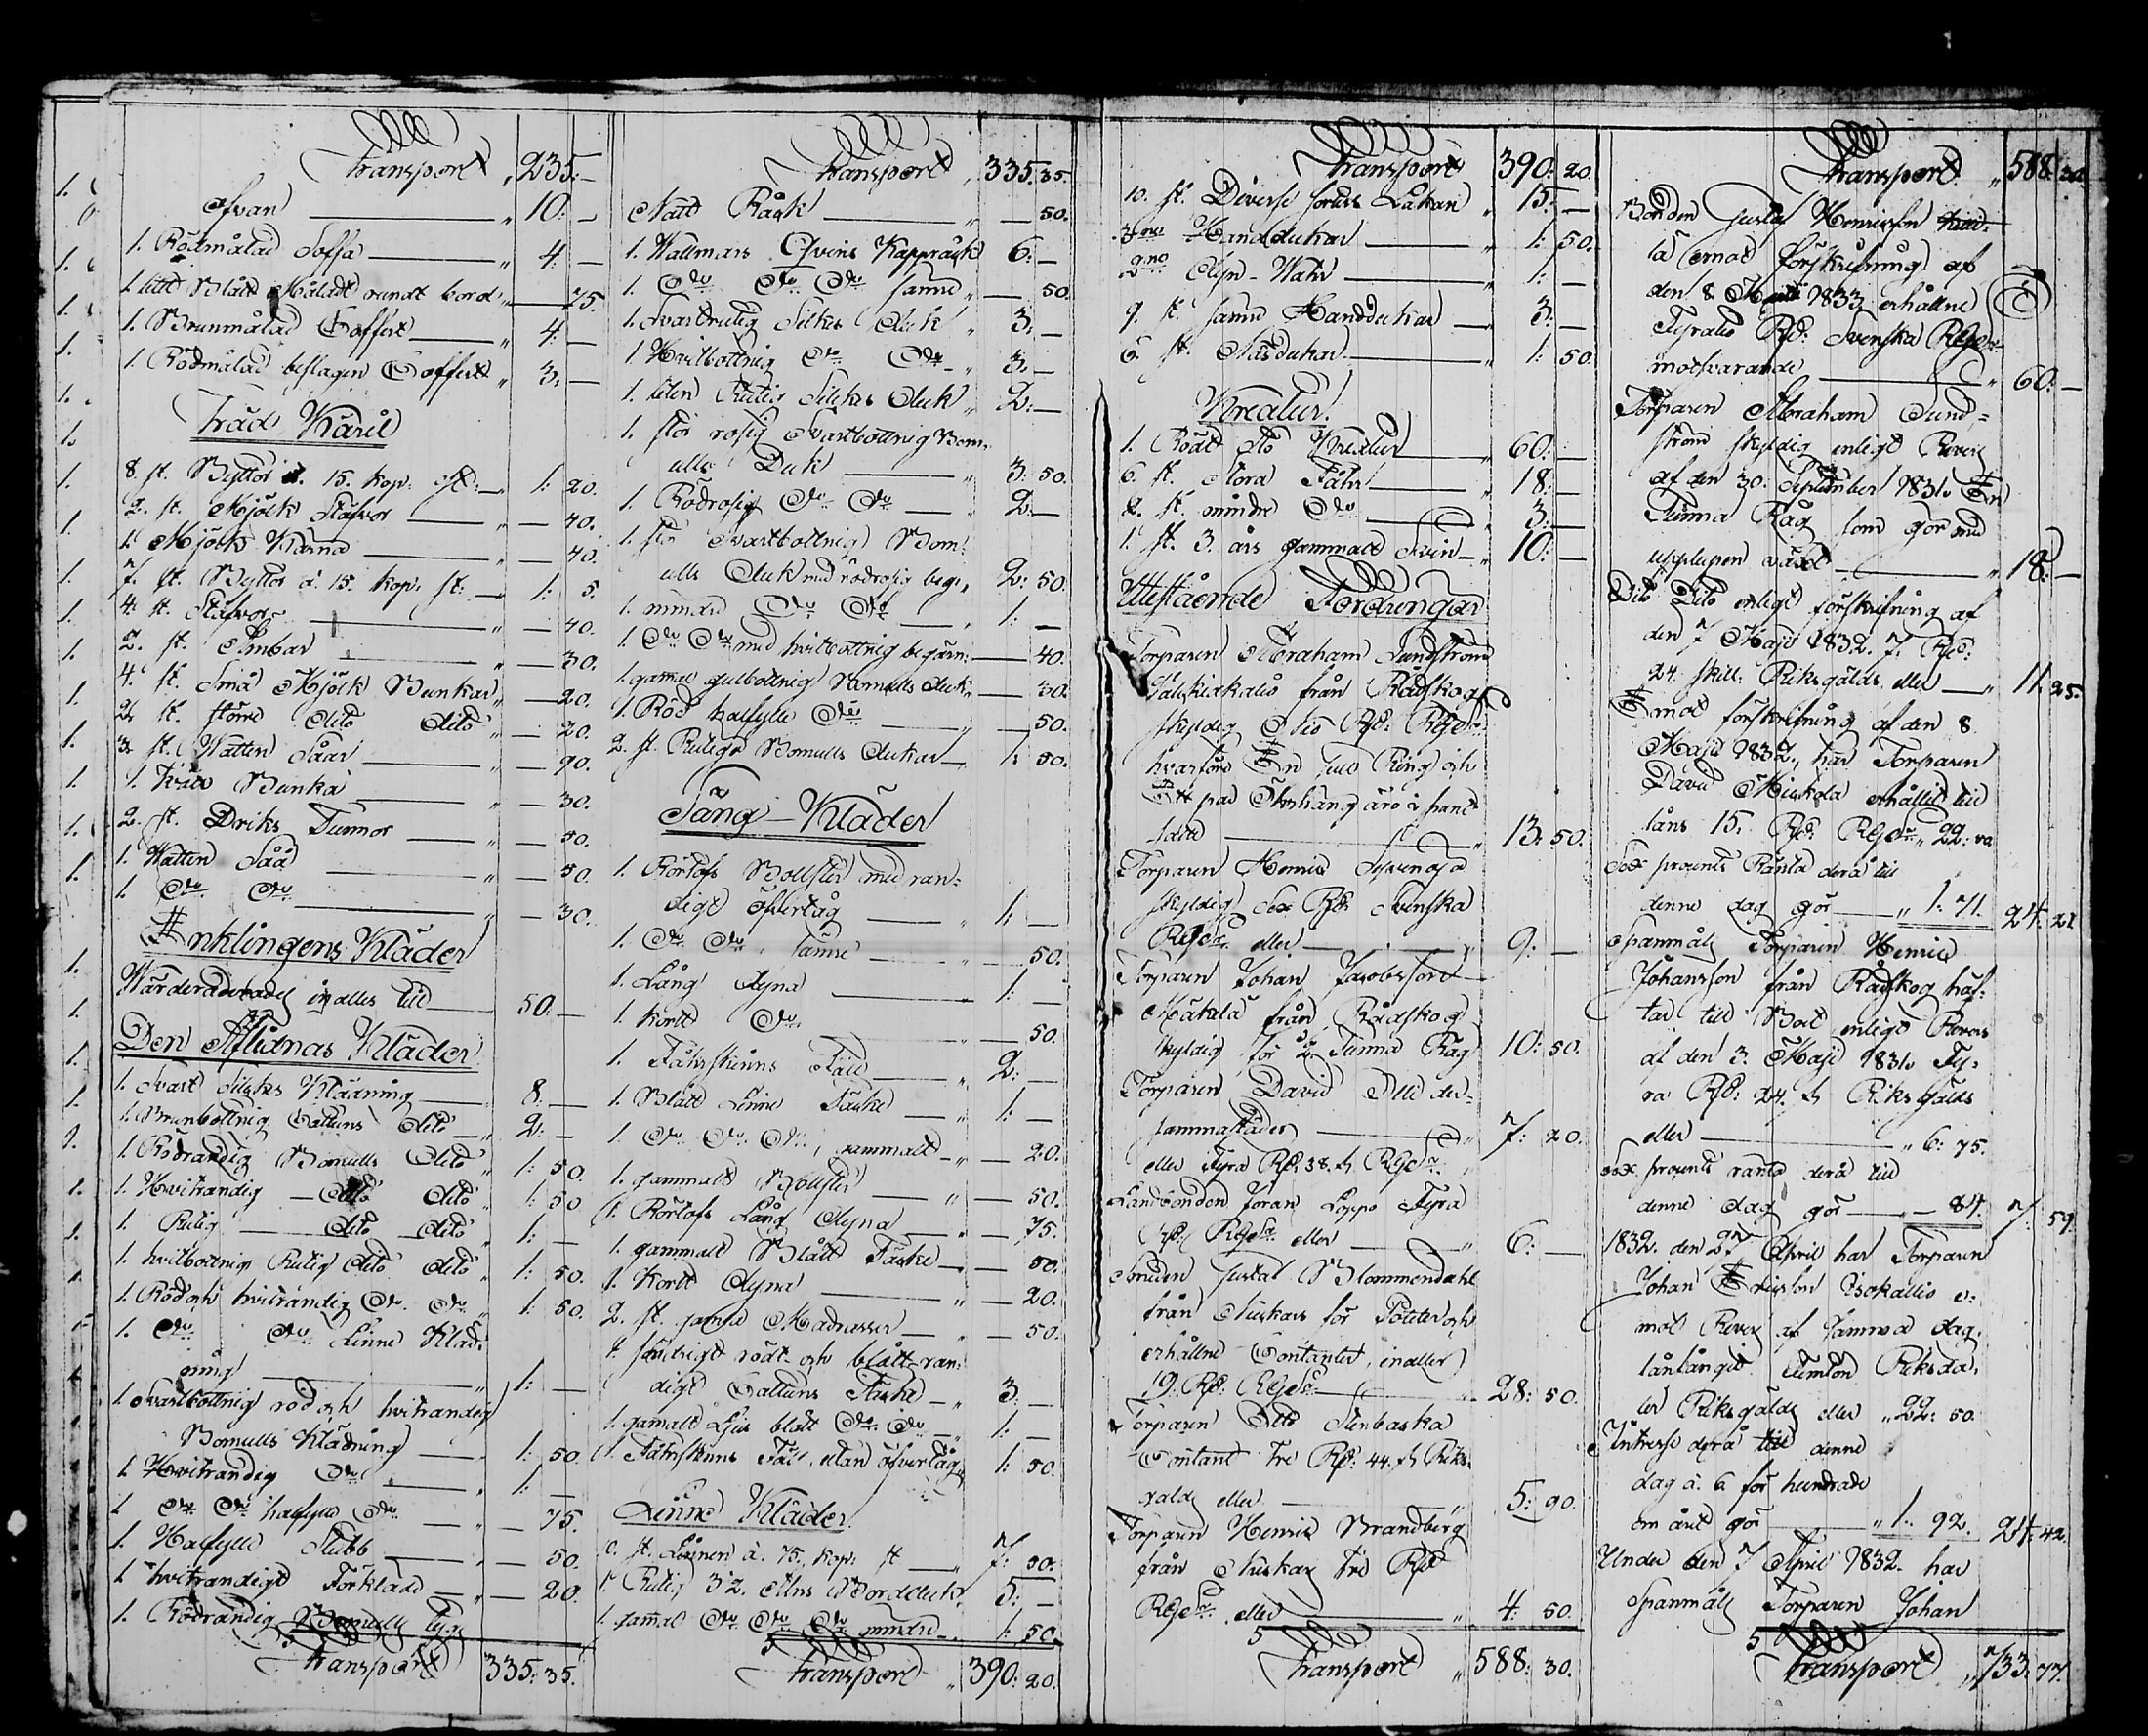 Transport 235:—
ofvan 10:—
1. Rödmålad Soffa 4:—
1. litet Blått Måladt rundt bord 75.
1. Brunmålad Coffert 4:—
1. Rödmålad beslagen Coffert 3:—
Träd Käril
8 st. Byttor à 15. kop: st: 1: 20.
2. st. Mjölk Stäfvor — 40.
1. Mjölk Kärna — 40.
7. st. Byttor à 15. kop: st: 1: 5.
4. st. Stäfvor — 40.
2. st. Ambar — 30.
4. st. Små Mjölk Bunkar — 20.
2. st. större dito dito — 20.
3. st. Watten Såar — 90.
1. Bunka — 30.
2. st. Driks Tunnor — 50.
1. Watten Såå — 50.
1. Do Do — 30.
Enklingens Kläder
inalles till 50:—
Den Aflidnas Kläder
1. Svart Silkes Klädning 8:—
1. Brunbottnig Cattuns dito 2:—
1. Rödrandig Bomulls dito 1: 50.
1. Hvitrandig dito dito 1: 50
1. Rutig dito dito 1:—
1. hvitbottnig Rutig dito dito 1: 50.
1. Röd och hvitrandig Do Do 1: 50.
1. Do Do Linne Kläd-
ning 1:—
1 Svartbottnig röd och hvitrandig
Bomulls Klädning 1: 50.
1. Hvitrandig Do 1:—
1 Do Do halfylle Do — 75.
1. Halfylle Stubb — 50.
1 hvitrandigt Förkläde — 20.
1. Rödrandig Bomulls
Transport 335: 35.
Transport 335. 35.
Natt Råck — 50.
1. Wallmars Qvins Kappråck 6:—
1. Do Do Do sämre — 50.
1. Svartrutig Silkes duk 3:—
1 Hvitbottnig Do Do 3:—
1. liten Rutig Silkes duk 2:—
1. stor rosig Svartbottnig Bom-
ulls Duk 3: 50.
1. Rödrosig Do Do 2:—
1. stor Svartbottnig Bom-
ulls duk med rödrosig beg: 2: 50.
1. mindre Do Do 1:—
1. Do Do med hvitbottnig begärn: — 40.
1. gamal gulbottnig Bomulls duk — 30.
1. Röd halfylle Do — 50.
2. st. Rutiga Bomulls dukar 1: 50.
Säng-Kläder
1. Rörlofs Bollster med ran-
digt öfvertåg 1:—
1. Do Do sämre — 50.
1. Lång dyna 1:—
1. kortt Do — 50.
1. Fåhrskinns Fäll 2:—
1. Blått Linne Täcke 1:—
1. Do Do Do gammalt — 20.
1. gammalt Bollster — 50.
1. Rörlofs Lång dyna — 75.
1. gammalt Blått Täcke — 50.
1. Kortt dyna — 20.
2. st. Madrasser — 50.
1. rödt- och blått-ran-
digt Cattuns Täcke 3:—
1. gamalt Ljus blått Do Do 1:—
1. Fåhrskinns Fäll utan öfvertåg 1: 50.
Linne Kläder
st. à 75. kop: st 7: 50.
1. Rutig 3 2. Alns Bordduk 5:—
1. gamal Do Do Do mindre 1: 50.
Transport 390: 20.
Transport 390: 20.
10. st. Diverse sorters Lakan 15:—
3ne Handdukar 1: 50.
2ne Dyn-Wahr 1:—
9. st. sämre Handdukar 3:—
6. st. Näsdukar 1: 50.
Kreatur.
1. Rödt Sto Kreatur 60:—
6. st. Stora Fåhr 18:—
2. st. mindre Do 3:—
1. st. 3. års gammalt Svin 10:—
Utestående Fordringar
Torparen Abraham Sundström
från Rådskog
skyldig Nio Rd: RGds
hvarföre En Ring och
Ett par Örhäng äro i pant
satte 13: 50.
Torparen Henric
skyldig Sex Rd: Svenska
RGds eller 9:—
Torparen Johan Jacobsson
från Rådskog
skyldig för 1/2 Tunna Råg 10: 50.
Torparen David der-
sammastädes 7: 20.
eller Fyra Rd: 38. s RGds
Landbonden Joran Loppo Fyra
Rd: RGds eller 6:—
Smeden Gustaf Blommendahl
från för Poteter och
erhållne Contanter, inalles
19. Rd: RGds 28: 50.
Torparen Stenbacka
Contant Tre Rd: 44. s Riks-
gälds eller 5: 90.
Torparen Henric Brandberg
från Tre Rd
RGds eller 4: 50.
Transport 588: 30.
Transport 588: 30.
Bonden Gustaf Henricsson
emot förskrifning af
den 8 1833 erhållne
Fyratio Rd: Svenska RGds
motsvarande 60:—
Torparen Abraham Sund-
ström skyldig enligt Revers
af den 30. September 1831. En
Tunna Råg som gör med
upplupen växt 18:—
Dito Dito enligt förskrifning af
den 7 Maji 1832. 7. Rd:
24. skill: Riksgälds eller 11: 25.
Emot förskrifning af den 8
Maji 1832, har Torparen
David erhållit till
låns 15. Rd: RGds 22: 50
Sex procents Ränta derå till
denne dag gör 1: 71. 24: 21
Spanmåls Torparen Henric
Johansson från Rådskog häf-
tar till Boet enligt Revers
af den 3. Maji 1831. Fy-
ra Rd: 24. s Riksgälds
eller 6: 75.
Sex procents ränta derå till
denne dag gör — 84. 7: 59
1832. den 27 April har Torparen
Johan Ericsson e-
mot Revers af samma dag
lånt femton Riksda-
ler Riksgälds eller 22: 50.
Intresse derå till denne
dag à 6. för hundrade
om året gör 1: 92. 24: 42.
Under den 7 April 1832. har
Spanmåls Torparen Johan
Transport 733: 77.